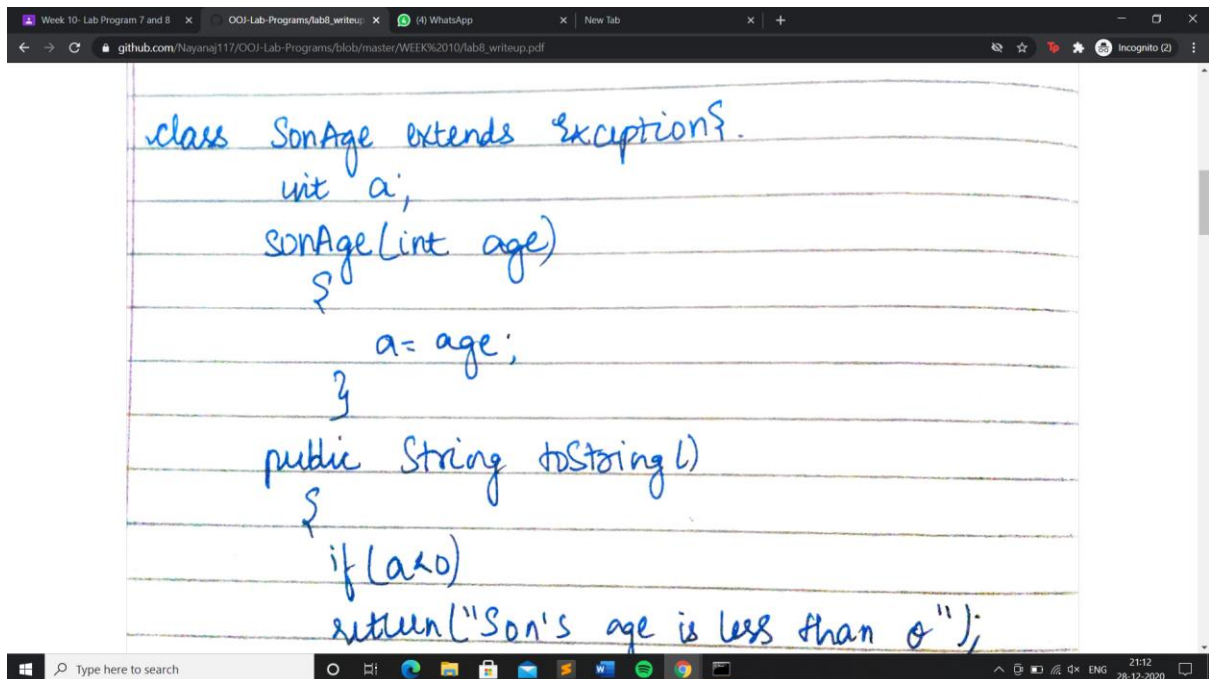 Week 10- Lab Program 7 and 8
OOJ-Lab-Programs/lab8_writeup
(4) WhatsApp
New Tab
github.com/Nayanaj117/OOJ-Lab-Programs/blob/master/WEEK%2010/lab8_writeup.pdf
Incognito (2)
class SonAge extends Exception{.
int a;
sonAge(int age)
{
a= age;
}
public String toString()
{
if(a<0)
return("Son's age is less than 0");
Type here to search
ENG
21:12
28-12-2020